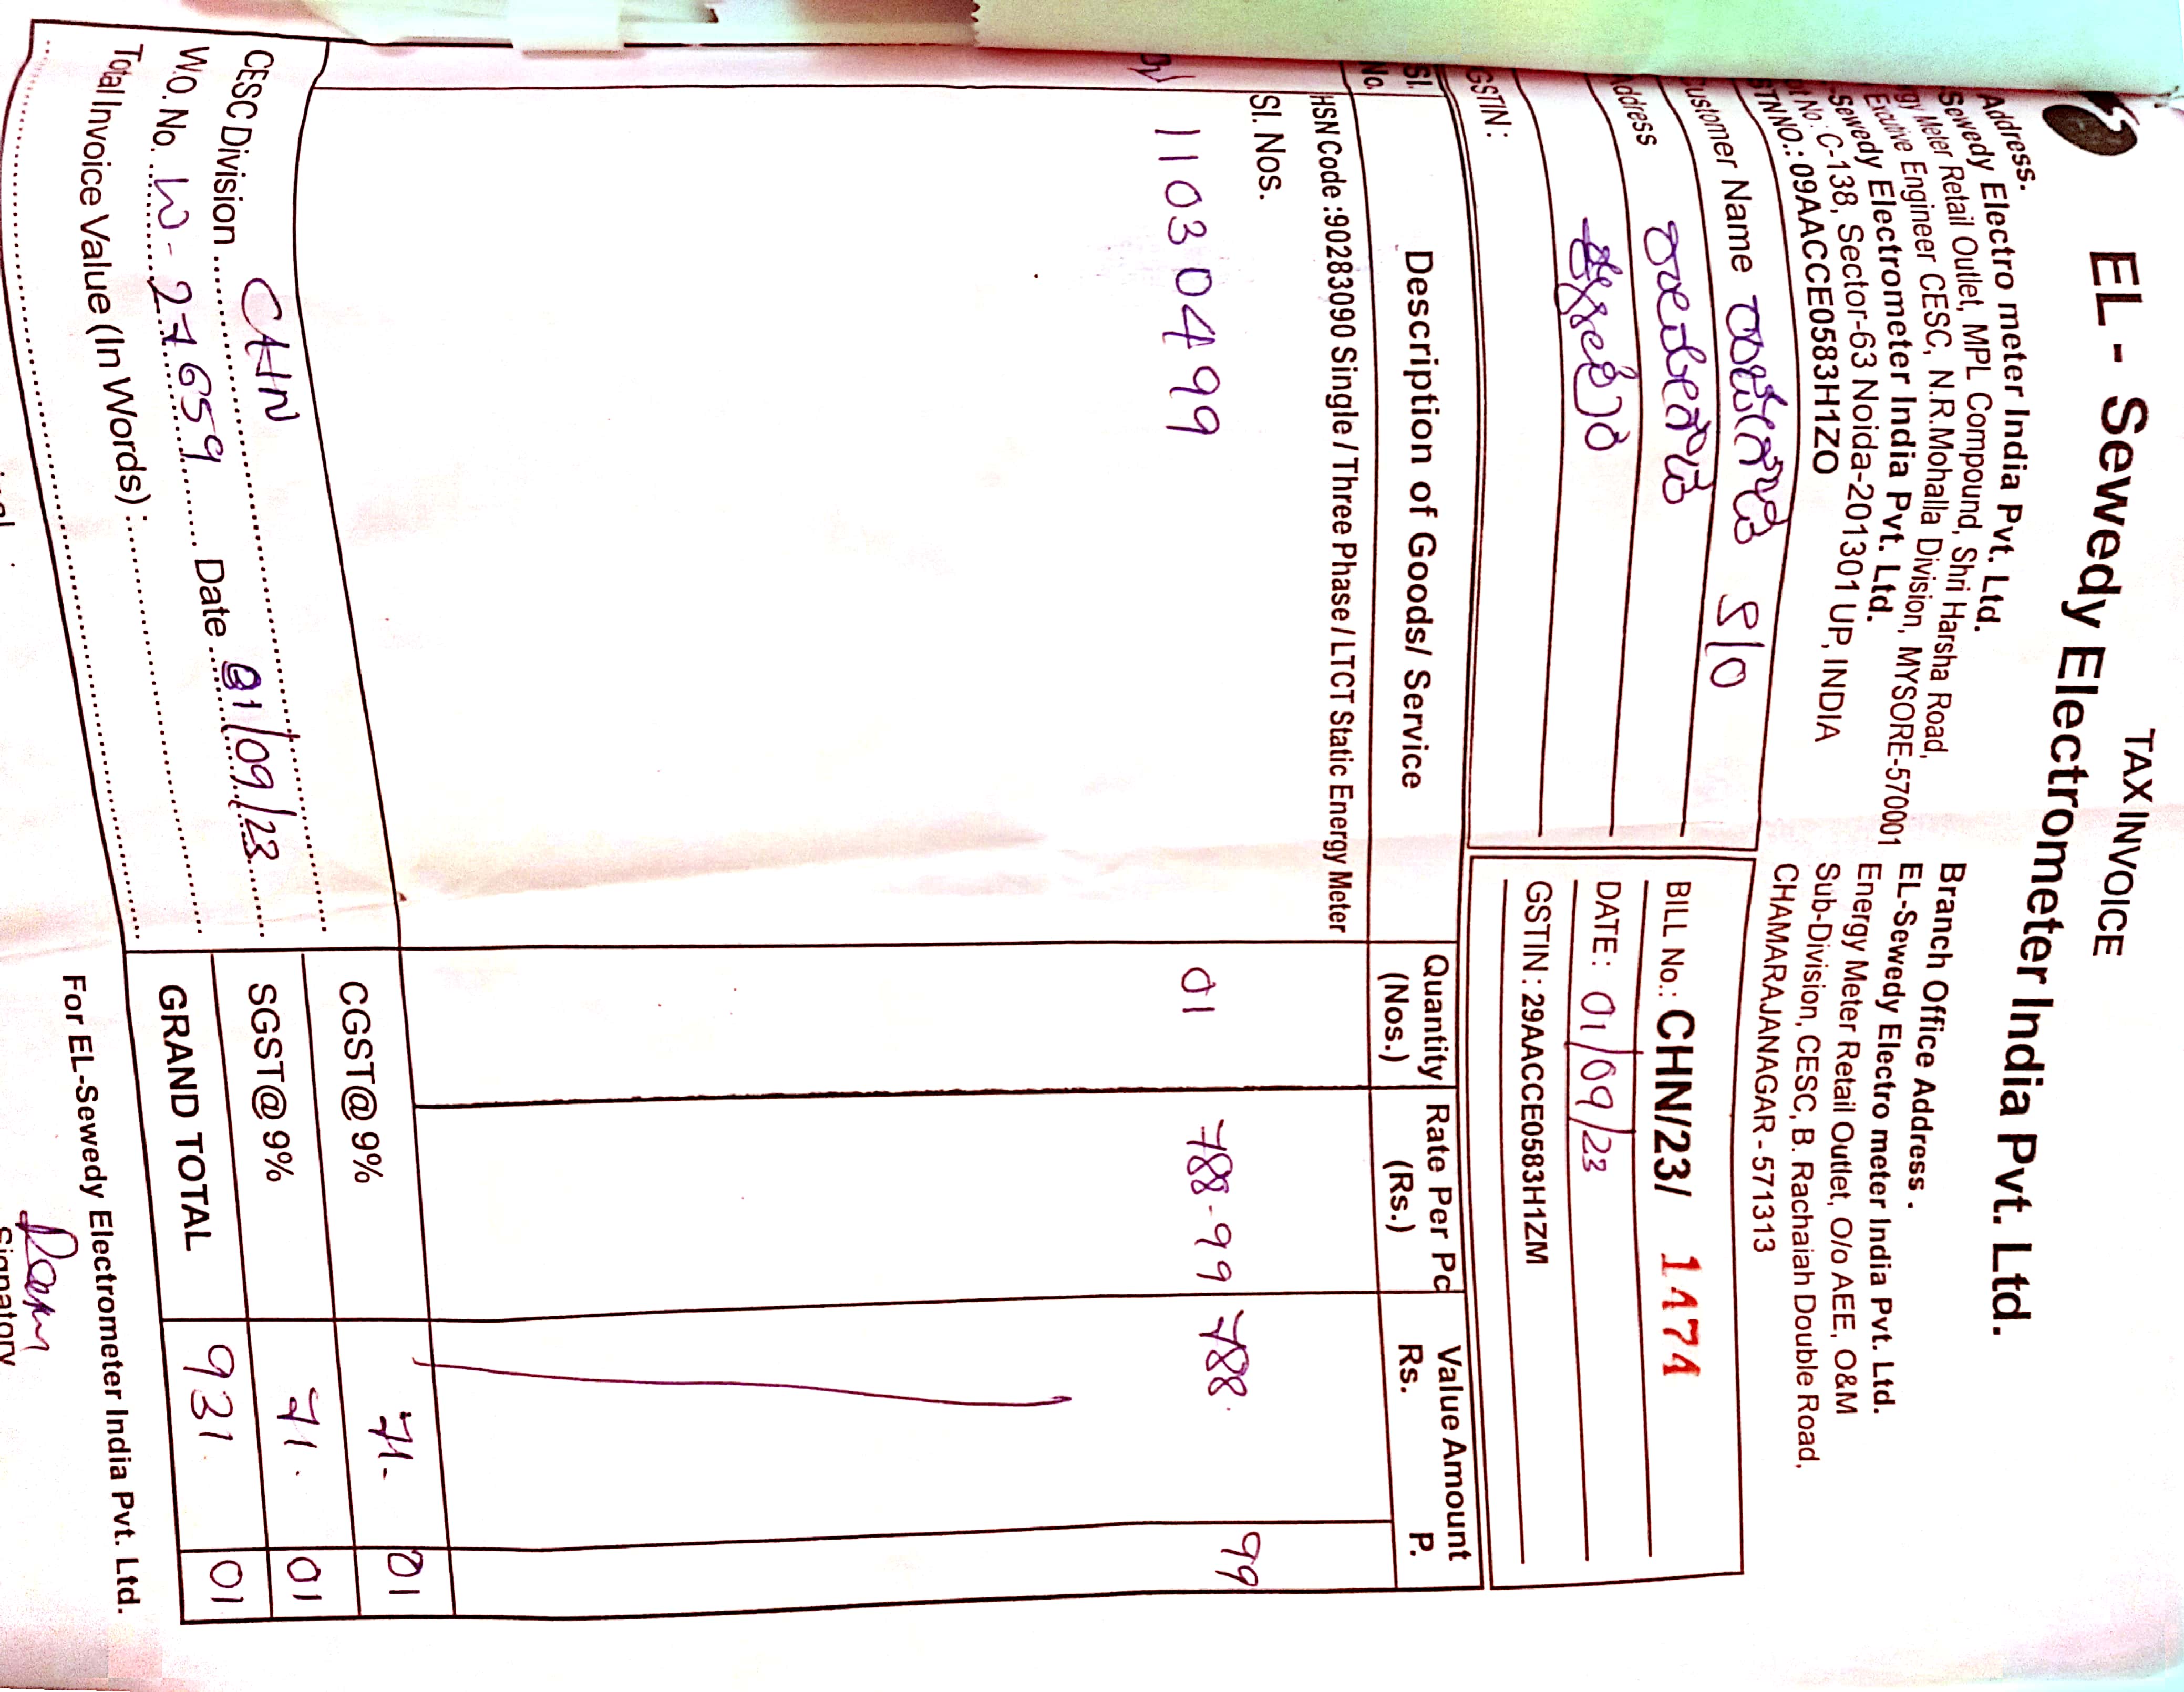 TAX INVOICE
EL - Sewedy Electrometer India Pvt. Ltd.
Address.
Sewedy Electro meter India Pvt. Ltd.
Meter Retail Outlet, MPL Compound, Shri Harsha Road,
Executive Engineer CESC, N.R.Mohalla Division, MYSORE-570001
Sewedy Electrometer India Pvt. Ltd.
No : C-138, Sector-63 Noida-201301 UP, INDIA
TNNO.: 09AACCE0583H1ZO
Branch Office Address .
EL-Sewedy Electro meter India Pvt. Ltd.
Energy Meter Retail Outlet, O/o AEE, O&M
Sub-Division, CESC, B. Rachaiah Double Road,
CHAMARAJANAGAR - 571313
Customer Name S/O
Address
GSTIN :
BILL No.: CHN/23/ 1474
DATE : 01/09/23
GSTIN : 29AACCE0583H1ZM
Sl. No. Description of Goods/ Service Quantity (Nos.) Rate Per Pc (Rs.) Value Amount Rs. P.
HSN Code :90283090 Single / Three Phase / LTCT Static Energy Meter
Sl. Nos.
11030499 01 788-99 788. 99
CESC Division CHN
W.O. No. W-27659 Date 01/09/23
Total Invoice Value (In Words) :
CGST@ 9% 71- 01
SGST@ 9% 71. 01
GRAND TOTAL 931. 01
For EL-Sewedy Electrometer India Pvt. Ltd.
Signatory